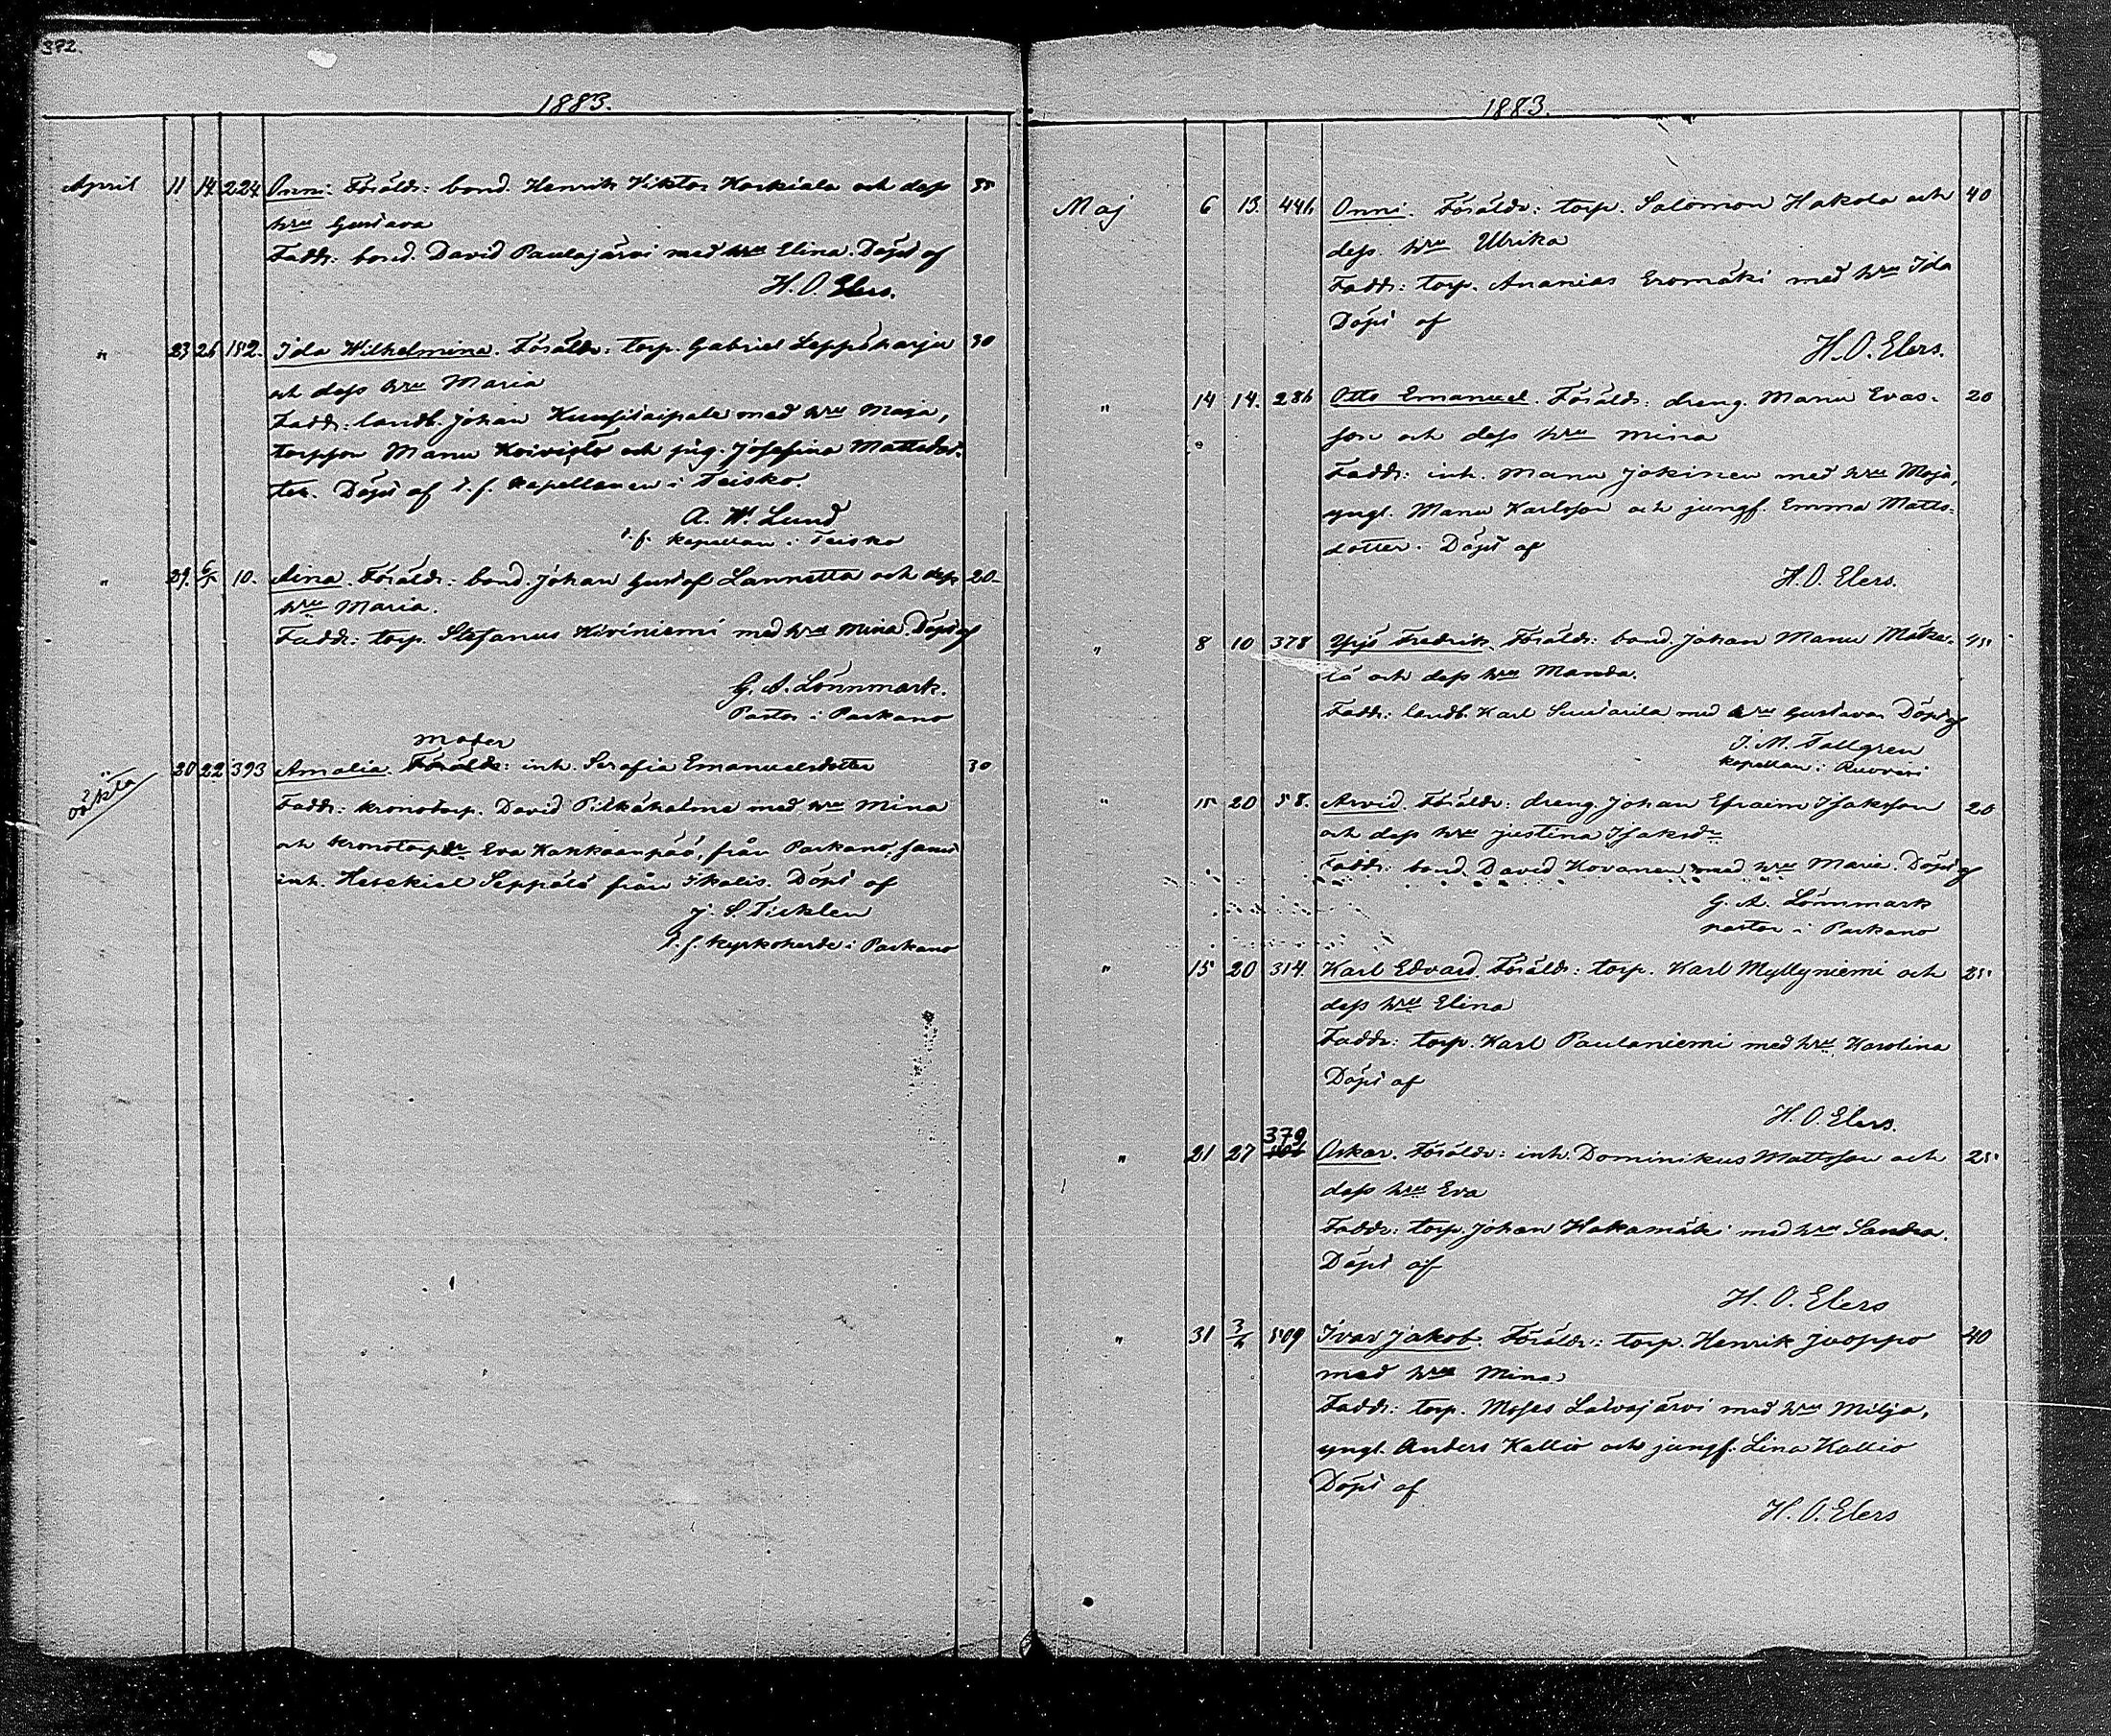 372.
1883.
April 11 14 224 Onni. Föräldr: bond. Henrik Viktor Kaskiala och dess 35
hru Gustava
Faddr: bond. David Paulajärvi med hru Elina. Döpt af
H. O. Elers.
" 23 26 182. Ida Wilhelmina. Föräldr: torp. Gabriel Leppäharju 30
och dess hru Maria
Faddr: landb. Johan Kunsitaipale med hru Maja,
torpson Manu Koivisto och pig. Josefina Mattsdot-
ter. Döpt af t. f. kapellanen i Teisko.
A. W. Lund
t. f. kapellan i Teisko
" 29. 6/5 10. Aina. Föräldr: bond. Johan Gustaf Lannetta och dess 20
hru Maria.
Faddr: torp. Stefanus Kiviniemi med hru Mina. Döpt af
G. A. Lönnmark.
Pastor i Parkano
moder
oäkta 20 22 393 Amalia. Föräldr: inh. Serafia Emanuelsdotter 30
Faddr: kronotorp. David Pitkäkalme med hru Mina
och kronotorpdr Eva Kakkaanpää, från Parkano, samt
inh. Hesekiel Seppälä från Ikalis. Döpt af
J. S. Ticklén
t. f. kyrkoherde i Parkano
1883.
Maj 6 13. 446 Onni. Föräldr: torp. Salomon Hakola och 40
dess hru Ulrika
Faddr: torp. Ananias Eromäki med hru Ida
Döpt af
H. O. Elers.
" 14 14. 286 Otto Emanuel. Föräldr: dreng. Manu Evas- 20
son och dess hru Mina
Faddr: inh. Manu Jokinen med hru Maja,
yngl. Manu Karlsson och jungf. Emma Matts-
dotter. Döpt af
H. O. Elers.
" 8 10 378 Yrjö Fredrik. Föräldr: bond. Johan Manu Mäke- 45
lä och dess hru Manda.
Faddr: landb. Karl Suutarila med hru Gustava Döpt af
I. M. Tallgren
kapellan i Ruovesi
" 15 20 58. Arvid. Föräldr: dreng. Johan Efraim Isaksson 20
och dess hru Justina Isaksdr
Faddr: bond. David Kovanen med hru Maria. Döpt af
G. A. Lönnmark
pastor i Parkano
" 15 20 314. Karl Edvard. Föräldr: torp. Karl Myllyniemi och 25
dess hru Elina
Faddr: torp. Karl Paulaniemi med hru Karolina
Döpt af
H. O. Elers.
379
" 21 27 Oskar. Föräldr: inh. Dominikus Mattsson och 25
dess hru Eva
Faddr: torp. Johan Hakamäki med hru Sandra.
Döpt af
H. O. Elers
" 31 3/6 509 Ivar Jakob. Föräldr: torp. Henrik Juoppo 40
med hru Mina
Faddr: torp. Moses Latvajärvi med hru Milja,
yngl. Anders Kallio och jungf. Lina Kallio
Döpt af
H. O. Elers